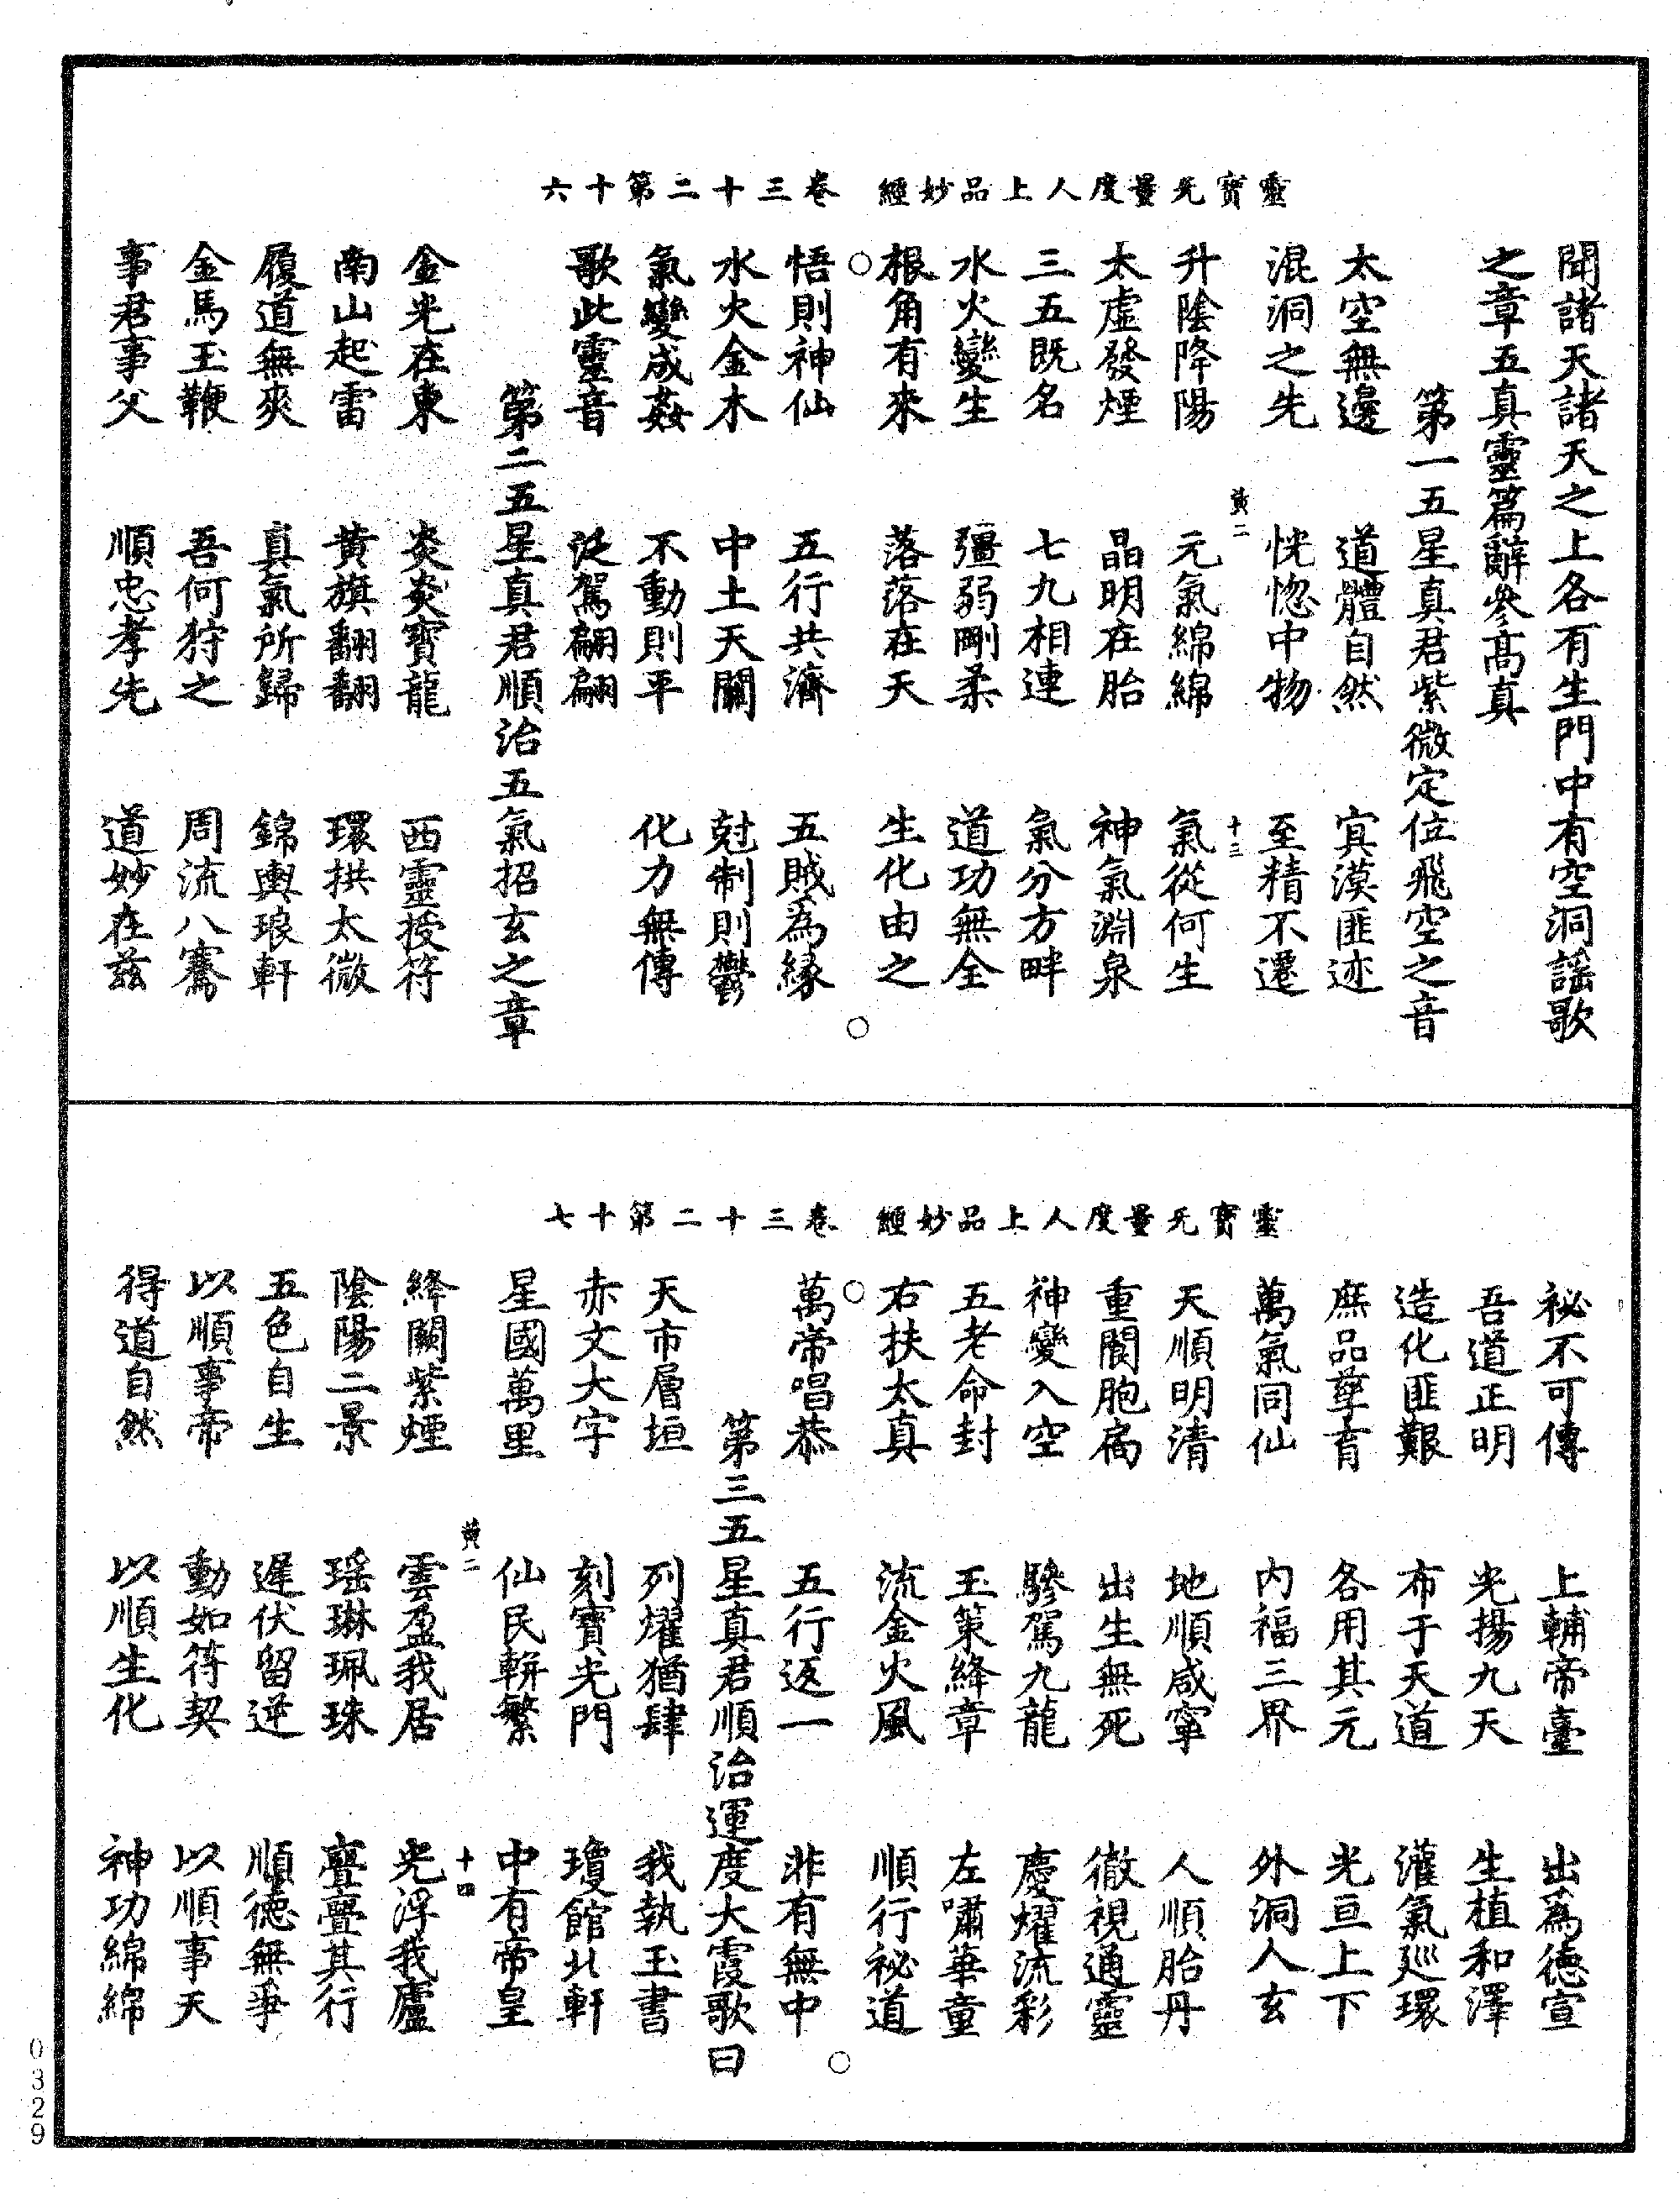 靈寶无量度人上品妙經　卷三十二第十六
聞諸天諸天之上各有生門中有空洞謠歌
之章五真靈篇辭參高真
第一五星真君紫微定位飛空之音
太空無邊　道體自然　寘漠匪迹
混洞之先　恍惚中物　至精不遷
黃二　十三
升陰降陽　元氣綿綿　氣從何生
太虛發煙　晶明在胎　神氣淵泉
三五既名　七九相連　氣分方畔
水火變生　彊弱剛柔　道功無全
根角有來　落落在天　生化由之
悟則神仙　五行共濟　五賊為緣
水火金木　中土天關　尅制則鬱
氣變成姦　不動則平　化力無傳
歌此靈音　泛駕翩翩
第二五星真君順治五氣招玄之章
金光在東　炎炎寶龍　西靈授符
南山起雷　黃旗翻翻　環拱太微
履道無爽　真氣所歸　錦輿琅軒
金馬玉鞭　吾何狩之　周流八騫
事君事父　順忠孝先　道妙在茲
靈寶无量度人上品妙經　卷三十二第十七
祕不可傳　上輔帝臺　出為德宣
吾道正明　光揚九天　生植和澤
造化匪艱　布于天道　灌氣廵環
庶品孳育　各用其元　光亘上下
萬氣同仙　內福三界　外洞入玄
天順明清　地順咸寧　人順胎丹
重閽胞扃　出生無死　徹視通靈
神變入空　驂駕九龍　慶燿流彩
五老命封　玉策絳章　左嘯華童
右扶太真　流金火風　順行祕道
萬帝唱恭　五行返一　非有無中
第三五星真君順治運度大霞歌曰
天市層垣　列燿猶肆　我執玉書
赤文大字　刻寶光門　瓊館北軒
星國萬里　仙民輧繁　中有帝皇
黃二　十四
絳闕紫煙　雲盈我居　光浮我廬
陰陽二景　瑶琳珮珠　亹亹其行
五色自生　遲伏留逆　順德無爭
以順事帝　動如符契　以順事天
得道自然　以順生化　神功綿綿
0329